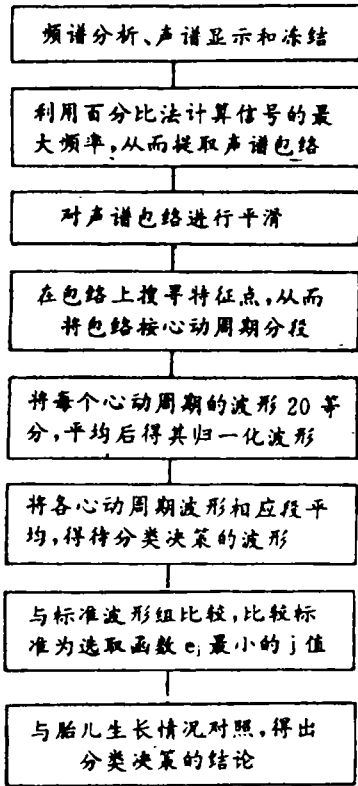 频谱分析、声谱显示和冻结
利用百分比法计算信号的最
大频率,从而提取声谱包络
对声谱包络进行平滑
在包络上搜寻特征点,从而
将包络按心动周期分段
将每个心动周期的波形 20 等
分,平均后得其归一化波形
将各心动周期波形相应段平
均,得待分类决策的波形
与标准波形组比较,比较标
准为选取函数 ej 最小的 j 值
与胎儿生长情况对照,得出
分类决策的结论